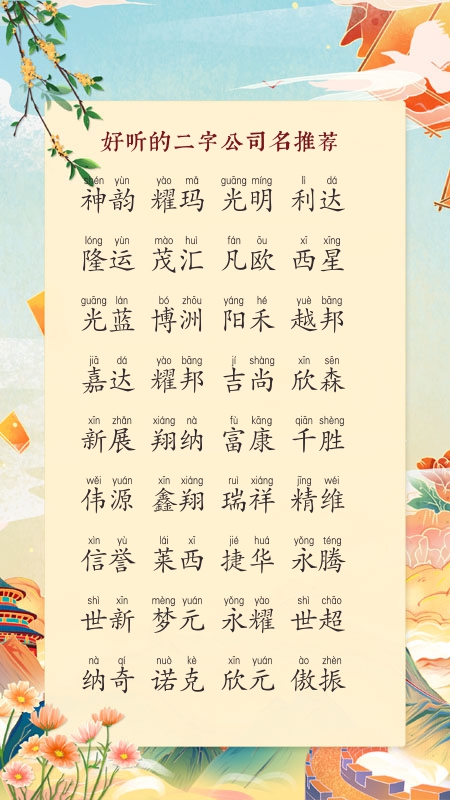 好听的二字公司名推荐
shén yùn yào mǎ guāng míng lì dá
神韵 耀玛 光明 利达
lóng yùn mào huì fán ōu xī xīng
隆运 茂汇 凡欧 西星
guāng lán bó zhōu yáng hé yuè bāng
光蓝 博洲 阳禾 越邦
jiā dá yào bāng jí shàng xīn sēn
嘉达 耀邦 吉尚 欣森
xīn zhǎn xiáng nà fù kāng qiān shèng
新展 翔纳 富康 千胜
wěi yuán xīn xiáng ruì xiáng jīng wéi
伟源 鑫翔 瑞祥 精维
xìn yù lái xī jié huá yǒng téng
信誉 莱西 捷华 永腾
shì xīn mèng yuán yǒng yào shì chāo
世新 梦元 永耀 世超
nà qí nuò kè xīn yuán ào zhèn
纳奇 诺克 欣元 傲振